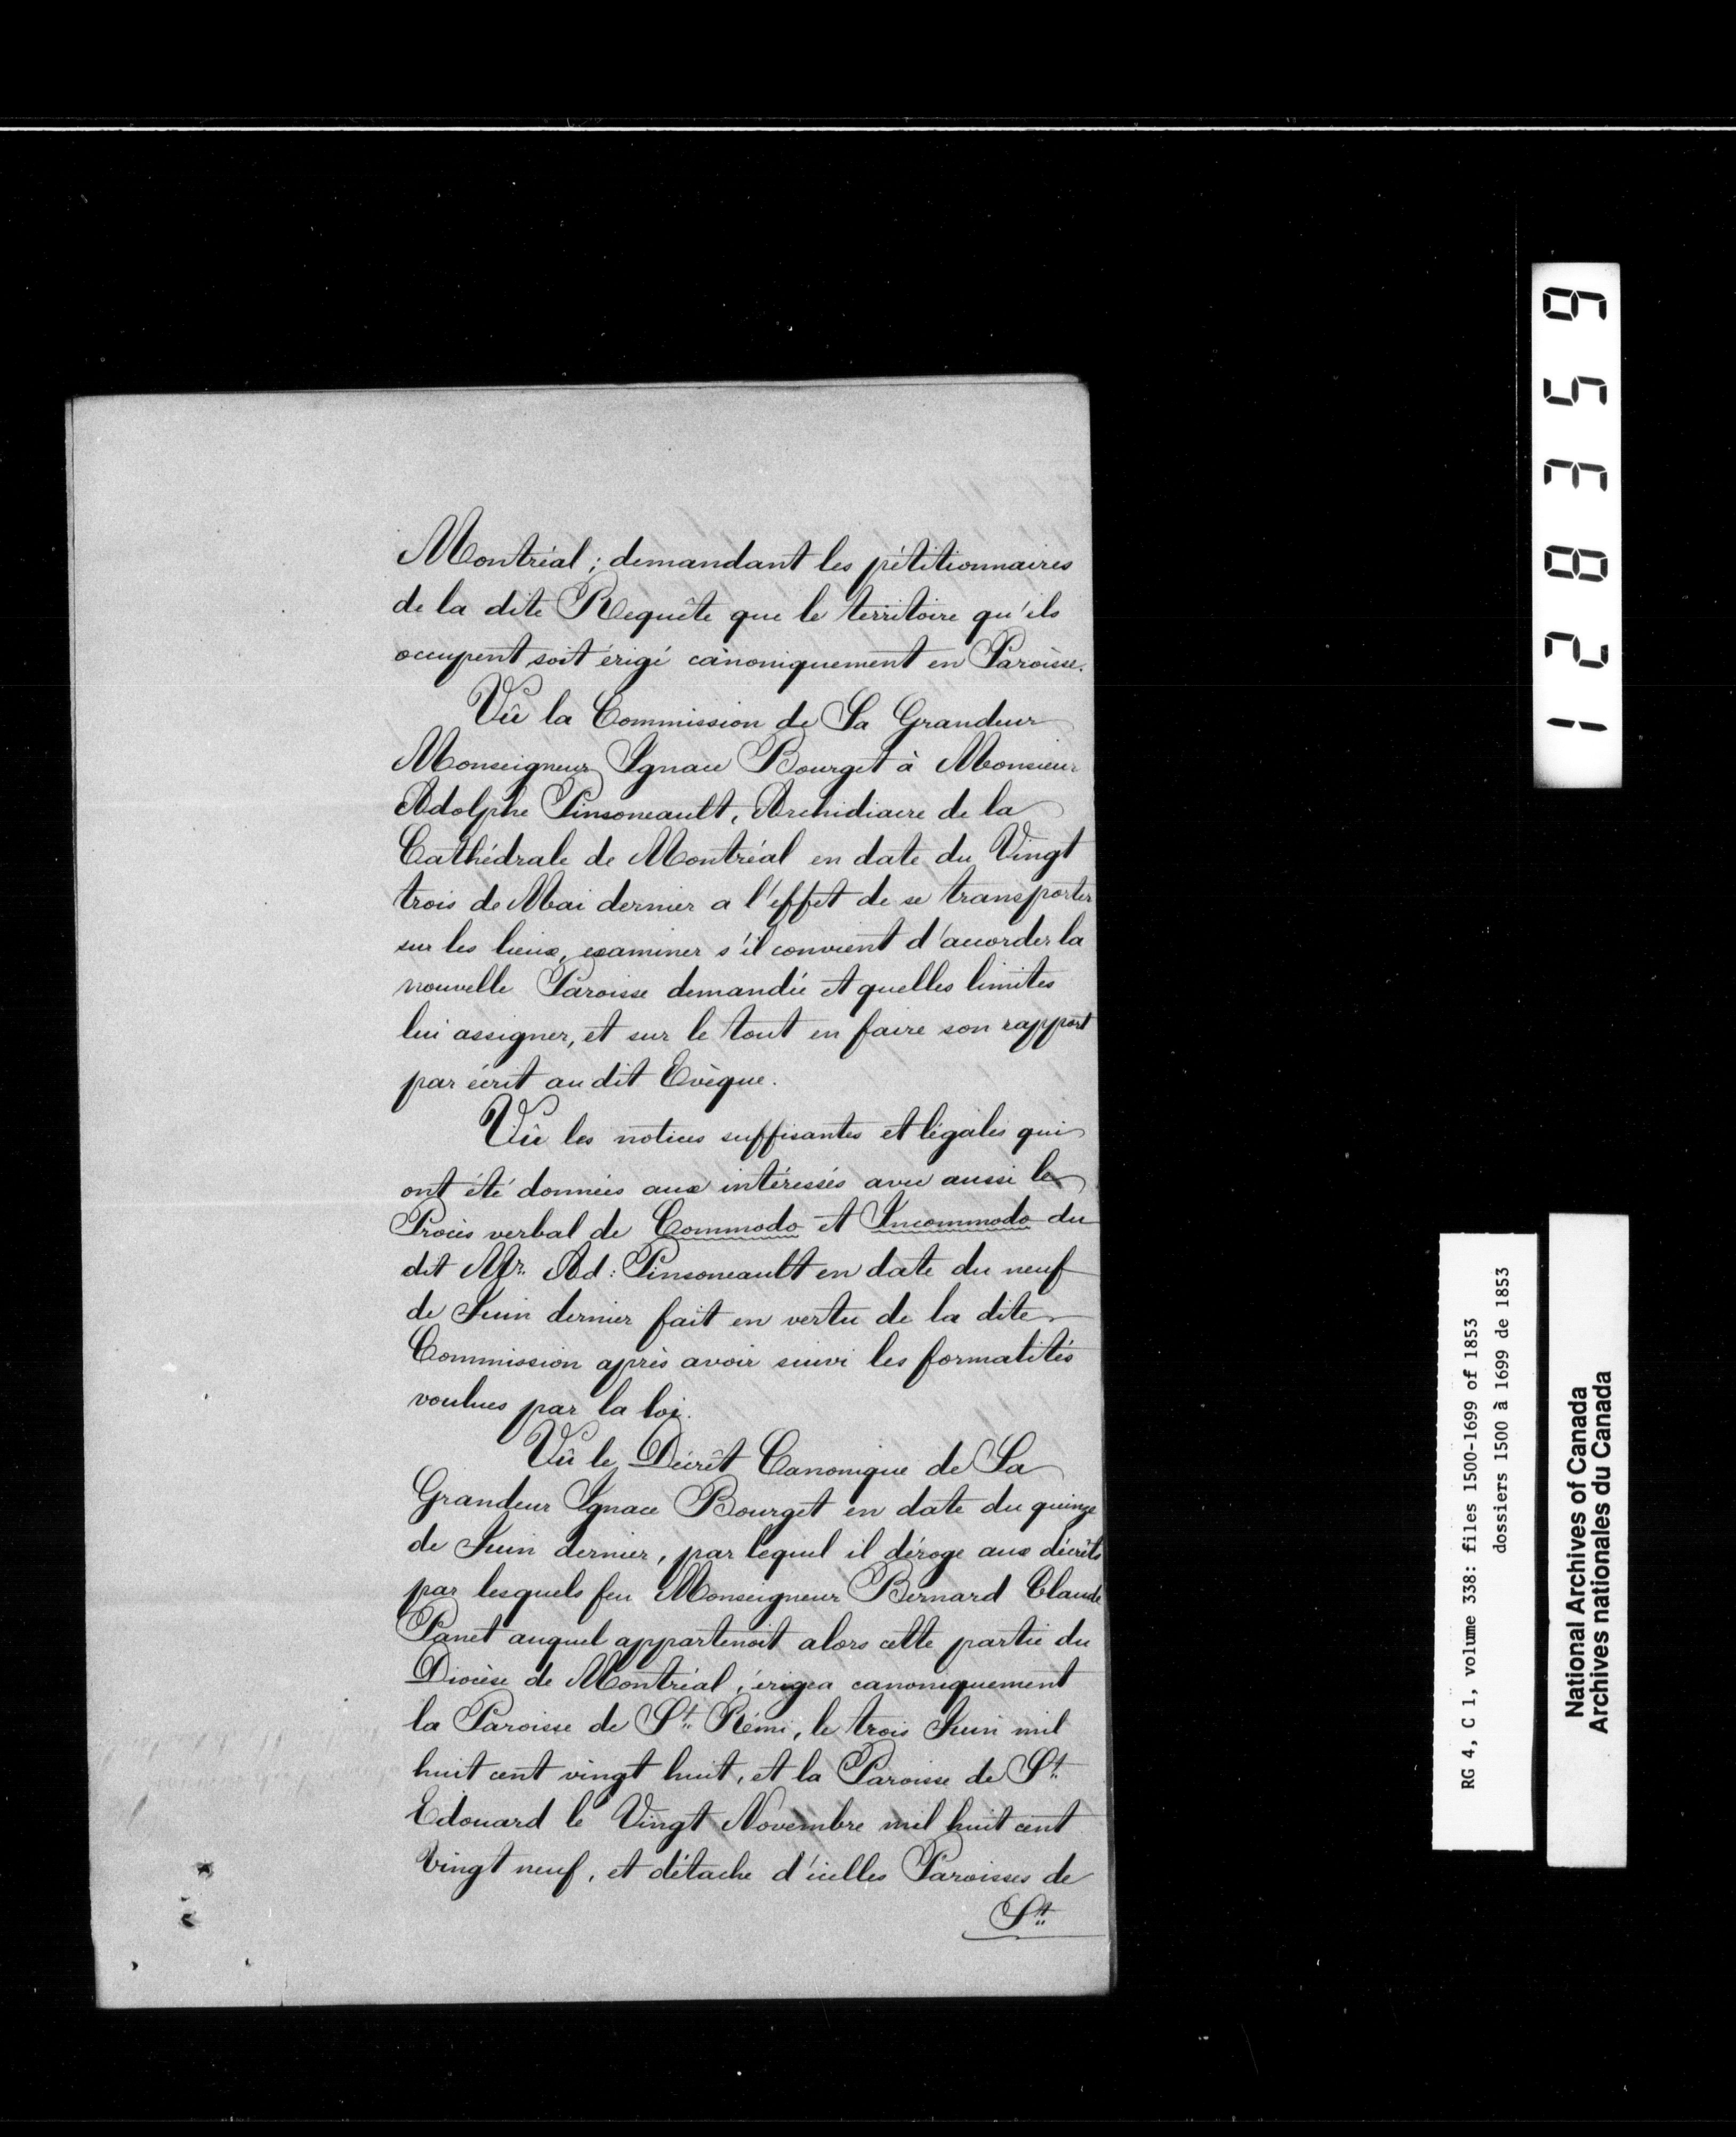 Montréal ; demandant les pétitionnaires
de la dite Requête que le territoire qu'ils
occupent soit érigé canoniquement en Paroisse.
Vû la Commission de Sa Grandeur
Monseigneur Ignace Bourget à Monsieur
Adolphe Pinsoneault, Archidiacre de la
Cathédrale de Montréal en date du Vingt
trois de Mai dernier a l'effet de se transporter
sur les lieux, examiner s'il convient d'accorder la
nouvelle Paroisse demandée et quelles limites
lui assigner, et sur le tout en faire son rapport
par écrit au dit Evèque.
Vû les notices suffisantes et légales qui
ont été données aux intéressés avec aussi le
Procès verbal de Commodo et Incommodo du
dit Mr. Ad : Pinsoneault en date du neuf
de Juin dernier fait en vertu de la dite
Commission après avoir suivi les formalités
voulues par la loi.
Vû le Décrêt Canonique de Sa
Grandeur Ignace Bourget en date du quinze
de Juin dernier, par lequel il déroge aux décrêts
par lesquels feu Monseigneur Bernard Claude
Panet auquel appartenoit alors cette partie du
Diocèse de Montréal, érigea canoniquement
la Paroisse de St. Rémi, le trois Juin mil
huit cent vingt huit, et la Paroisse de St.
Edouard le Vingt Novembre mil huit cent
Vingt neuf, et détache d'icelles Paroisses de
St.
128359
RG 4, C 1, volume 338: files 1500-1699 of 1853
dossiers 1500 à 1699 de 1853
National Archives of Canada
Archives nationales du Canada